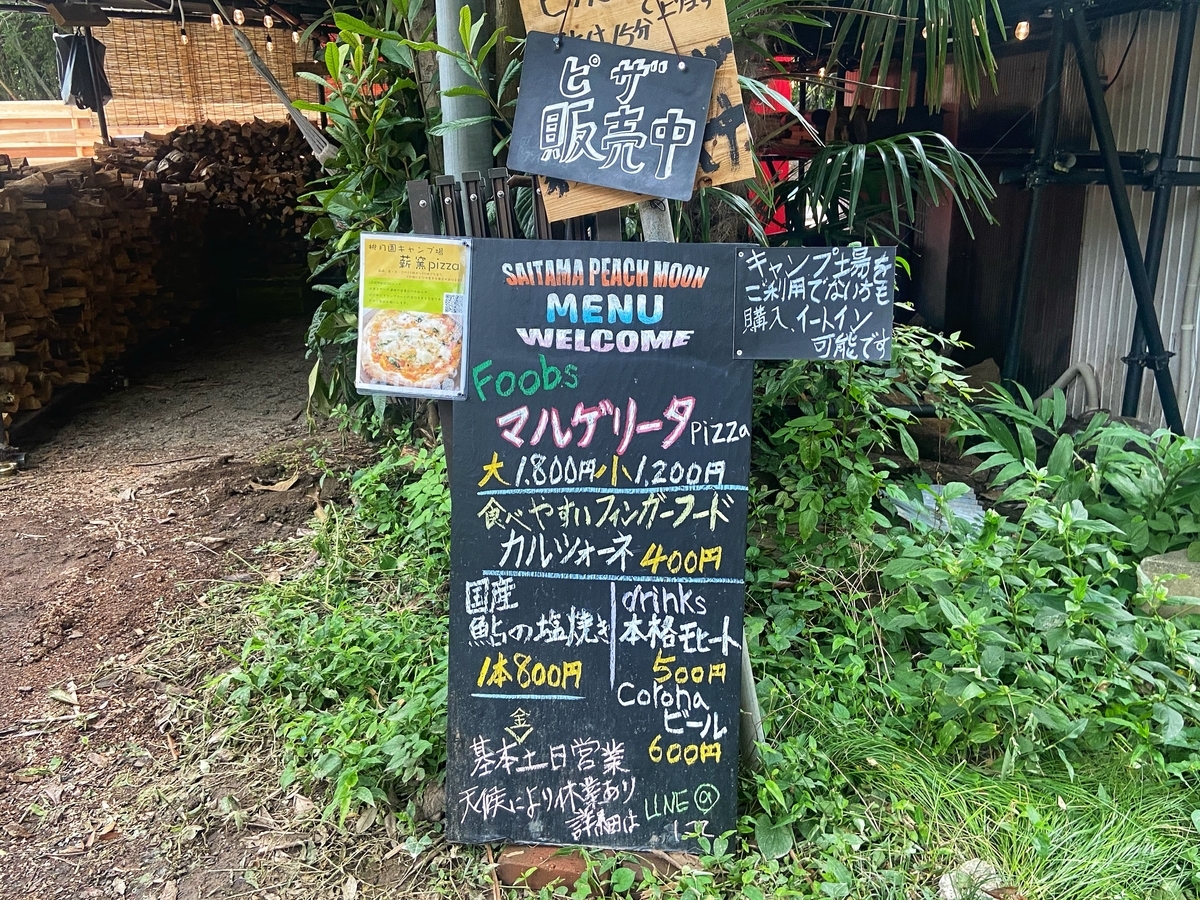 は15分
ピザ
販売中
桃月園キャンプ場
薪窯pizza
SAITAMA PEACH MOON
MENU
WELCOME
キャンプ場を
ご利用でない方も
購入、イートイン
可能です
FooDs
マルゲリータPizza
大1.800円/小1.200円
食べやすいフィンガーフード
カルツォーネ400円
国産
鮎の塩焼き
1本800円
drinks
本格モヒート
500円
Corona
ビール
600円
金
基本土日営業
天候により休業あり
詳細はLINE@